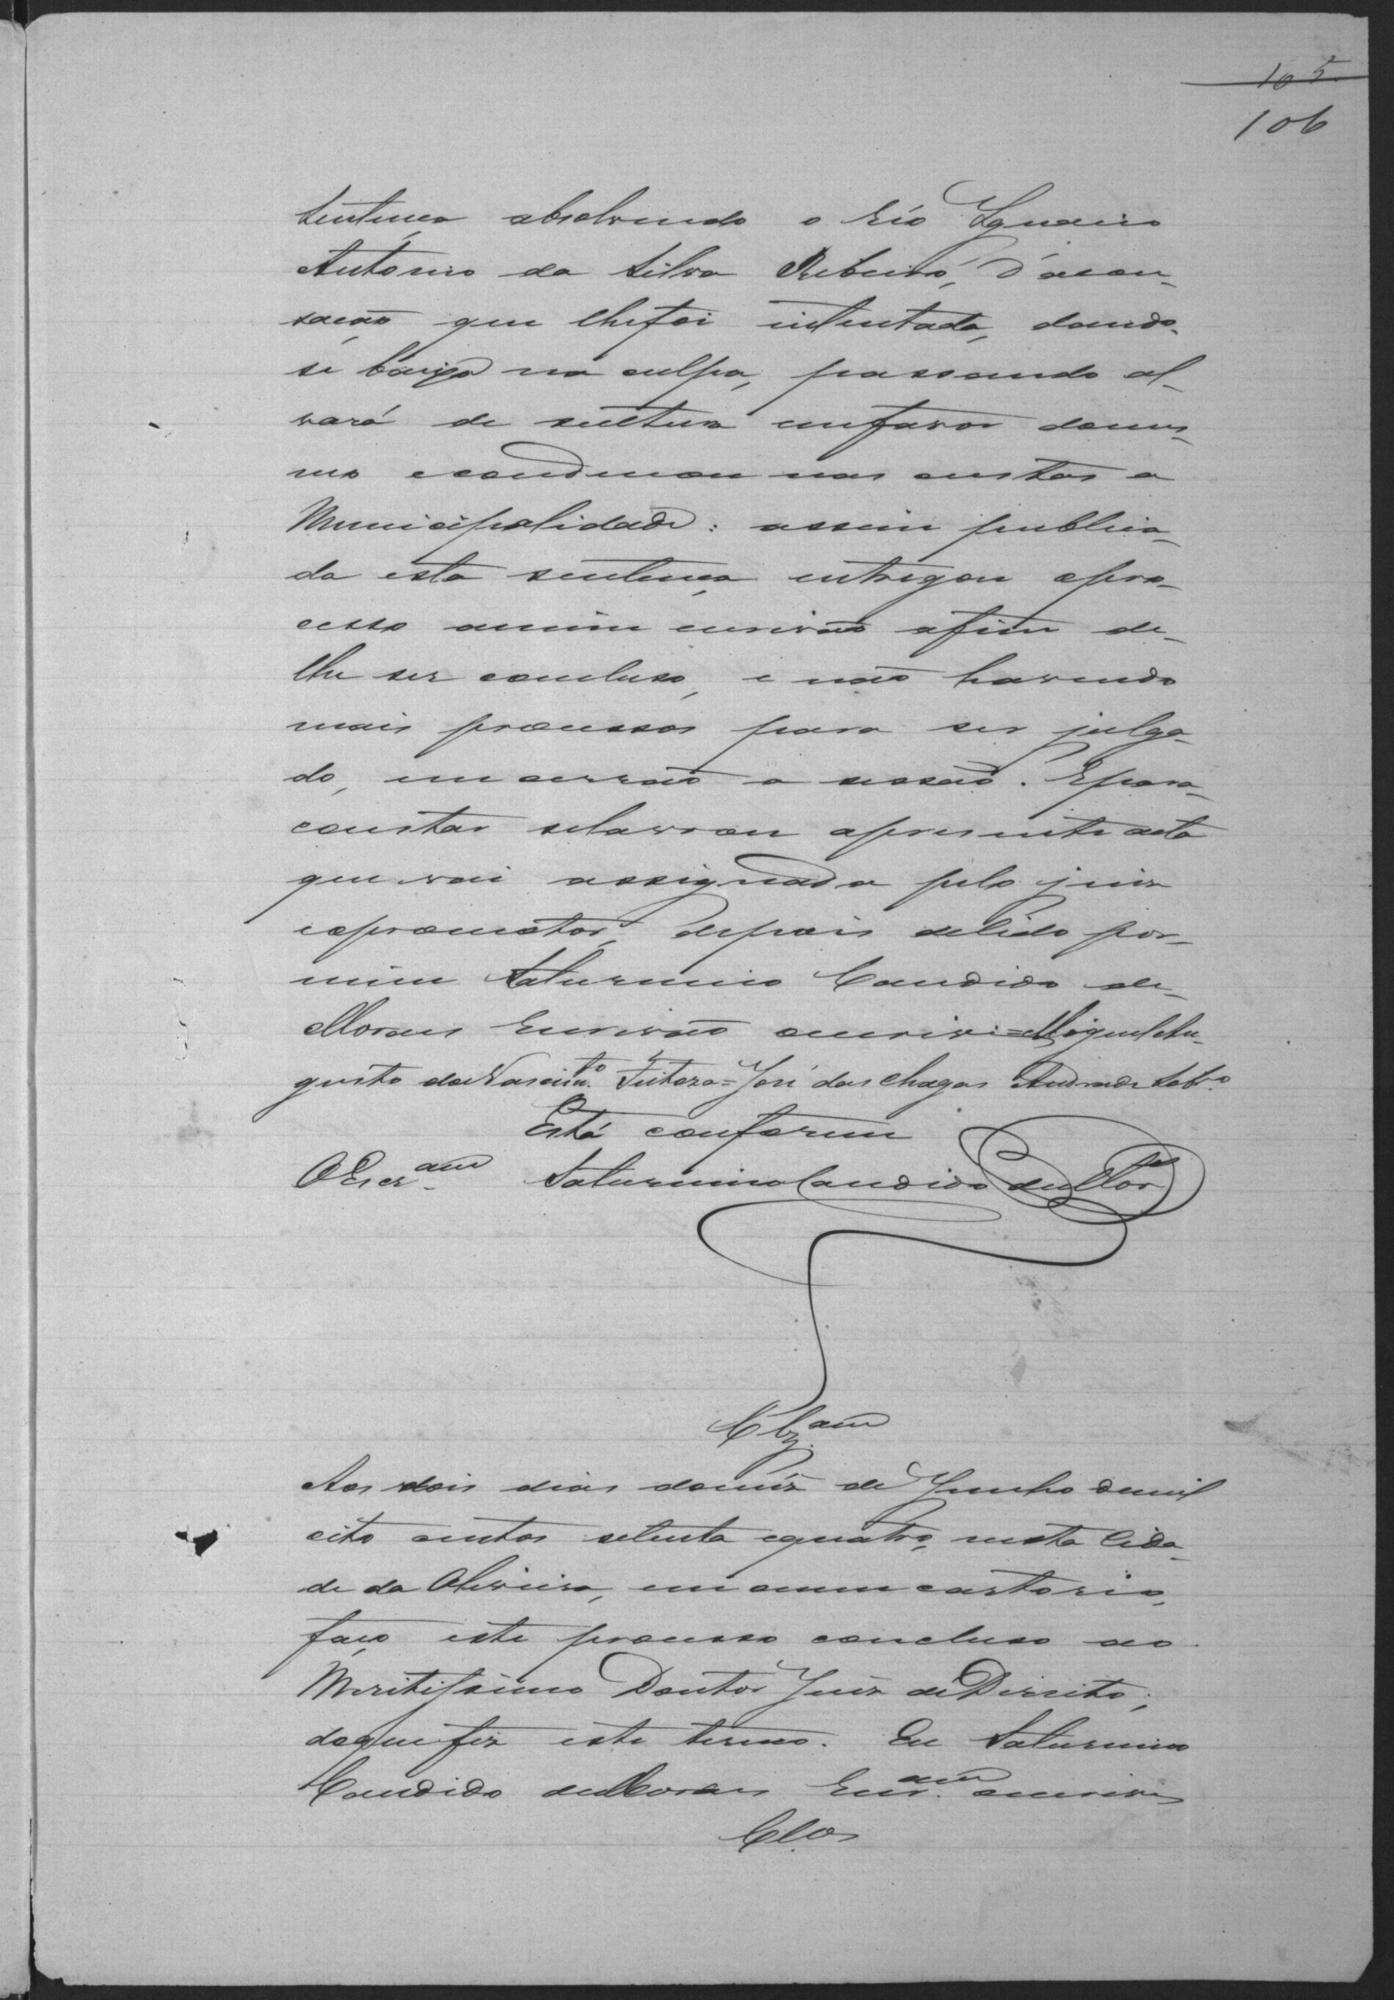 105
106
sentença absolvendo o réo Ignacio
Antonio da Silva Ribeiro, d'accu-
sação que lhe foi intentada, dando-
se baixa na culpa, passando al-
vará de soltura em favor domes-
mo e condemnou nas custas a
Municipalidade: assim publica-
da esta sentença entregou opro-
cesso amim escrivão afim de-
lhe ser concluso, e não havendo
mais processos para ser julga-
do, encerrão a sessão. Epara-
constar selavrou apresente acta
que vai assignada pelo juiz
eopromotor, depois delido por-
mim Saturnino Candido de-
Moraes Escrivão oescrivi = Miguel Au-
gusto do Nascim.to Feitoza = José das Chagas Andrade Sobr.o
Está conforme
O Escr.am Saturnino Candido de Mor.es
Clz.am
Aos dois dias domêz de Junho demil
oito centos setenta equatro, nesta Cida-
de da Oliveira, em omeu cartorio,
faço este processo concluso ao
Meritissimo Doutor Juiz de Direito;
doque fiz este termo. Eu Saturnino
Candido de Moraes Escr.am oescrivi
Clos